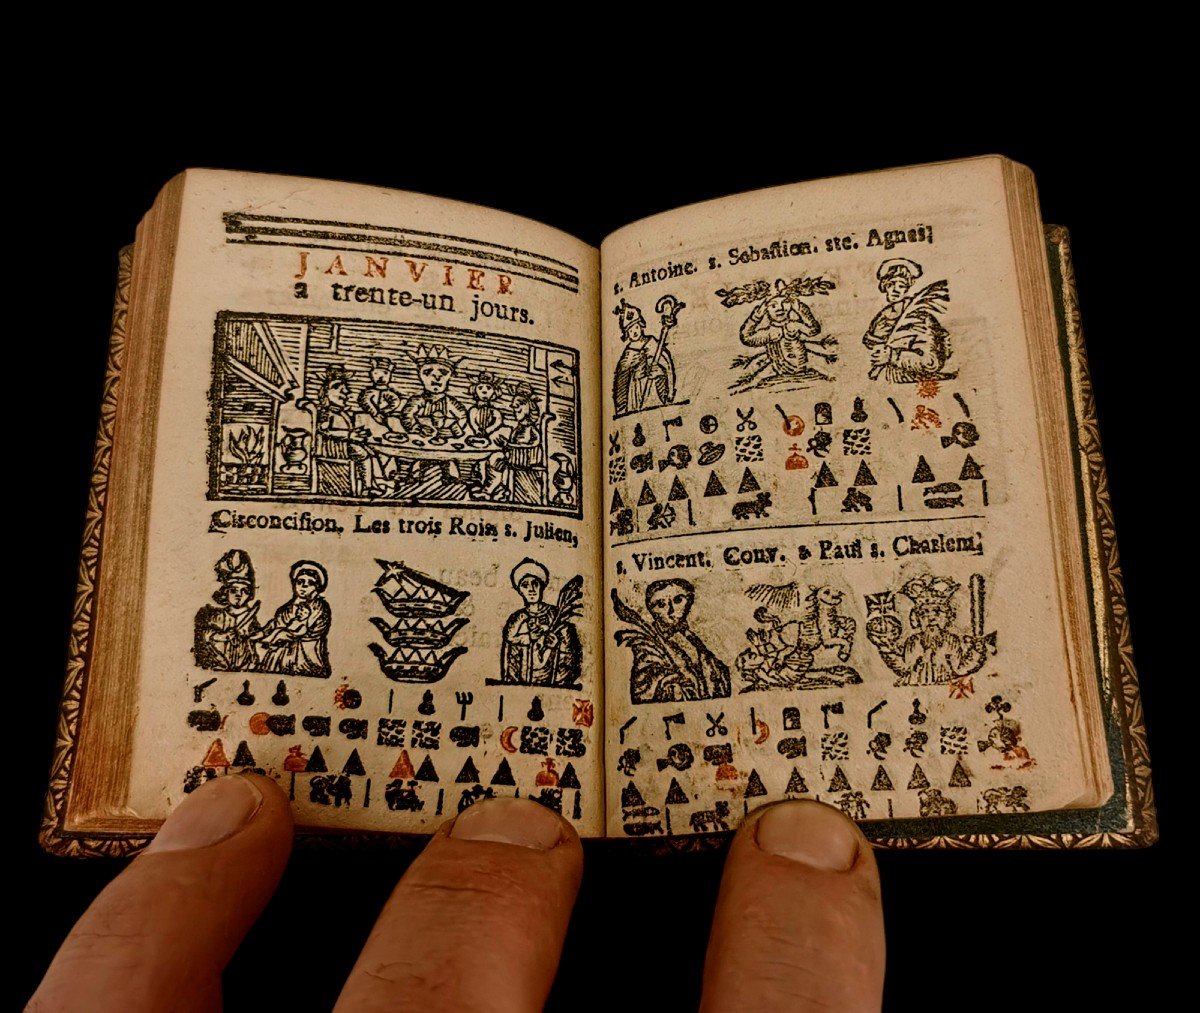 JANVIER
a trente-un jours.
Cisconcision. Les trois Rois s. Julien,
s. Antoine. s. Sebastien. ste. Agnes,
s. Vincent. Conv. s Paul s. Charlem,